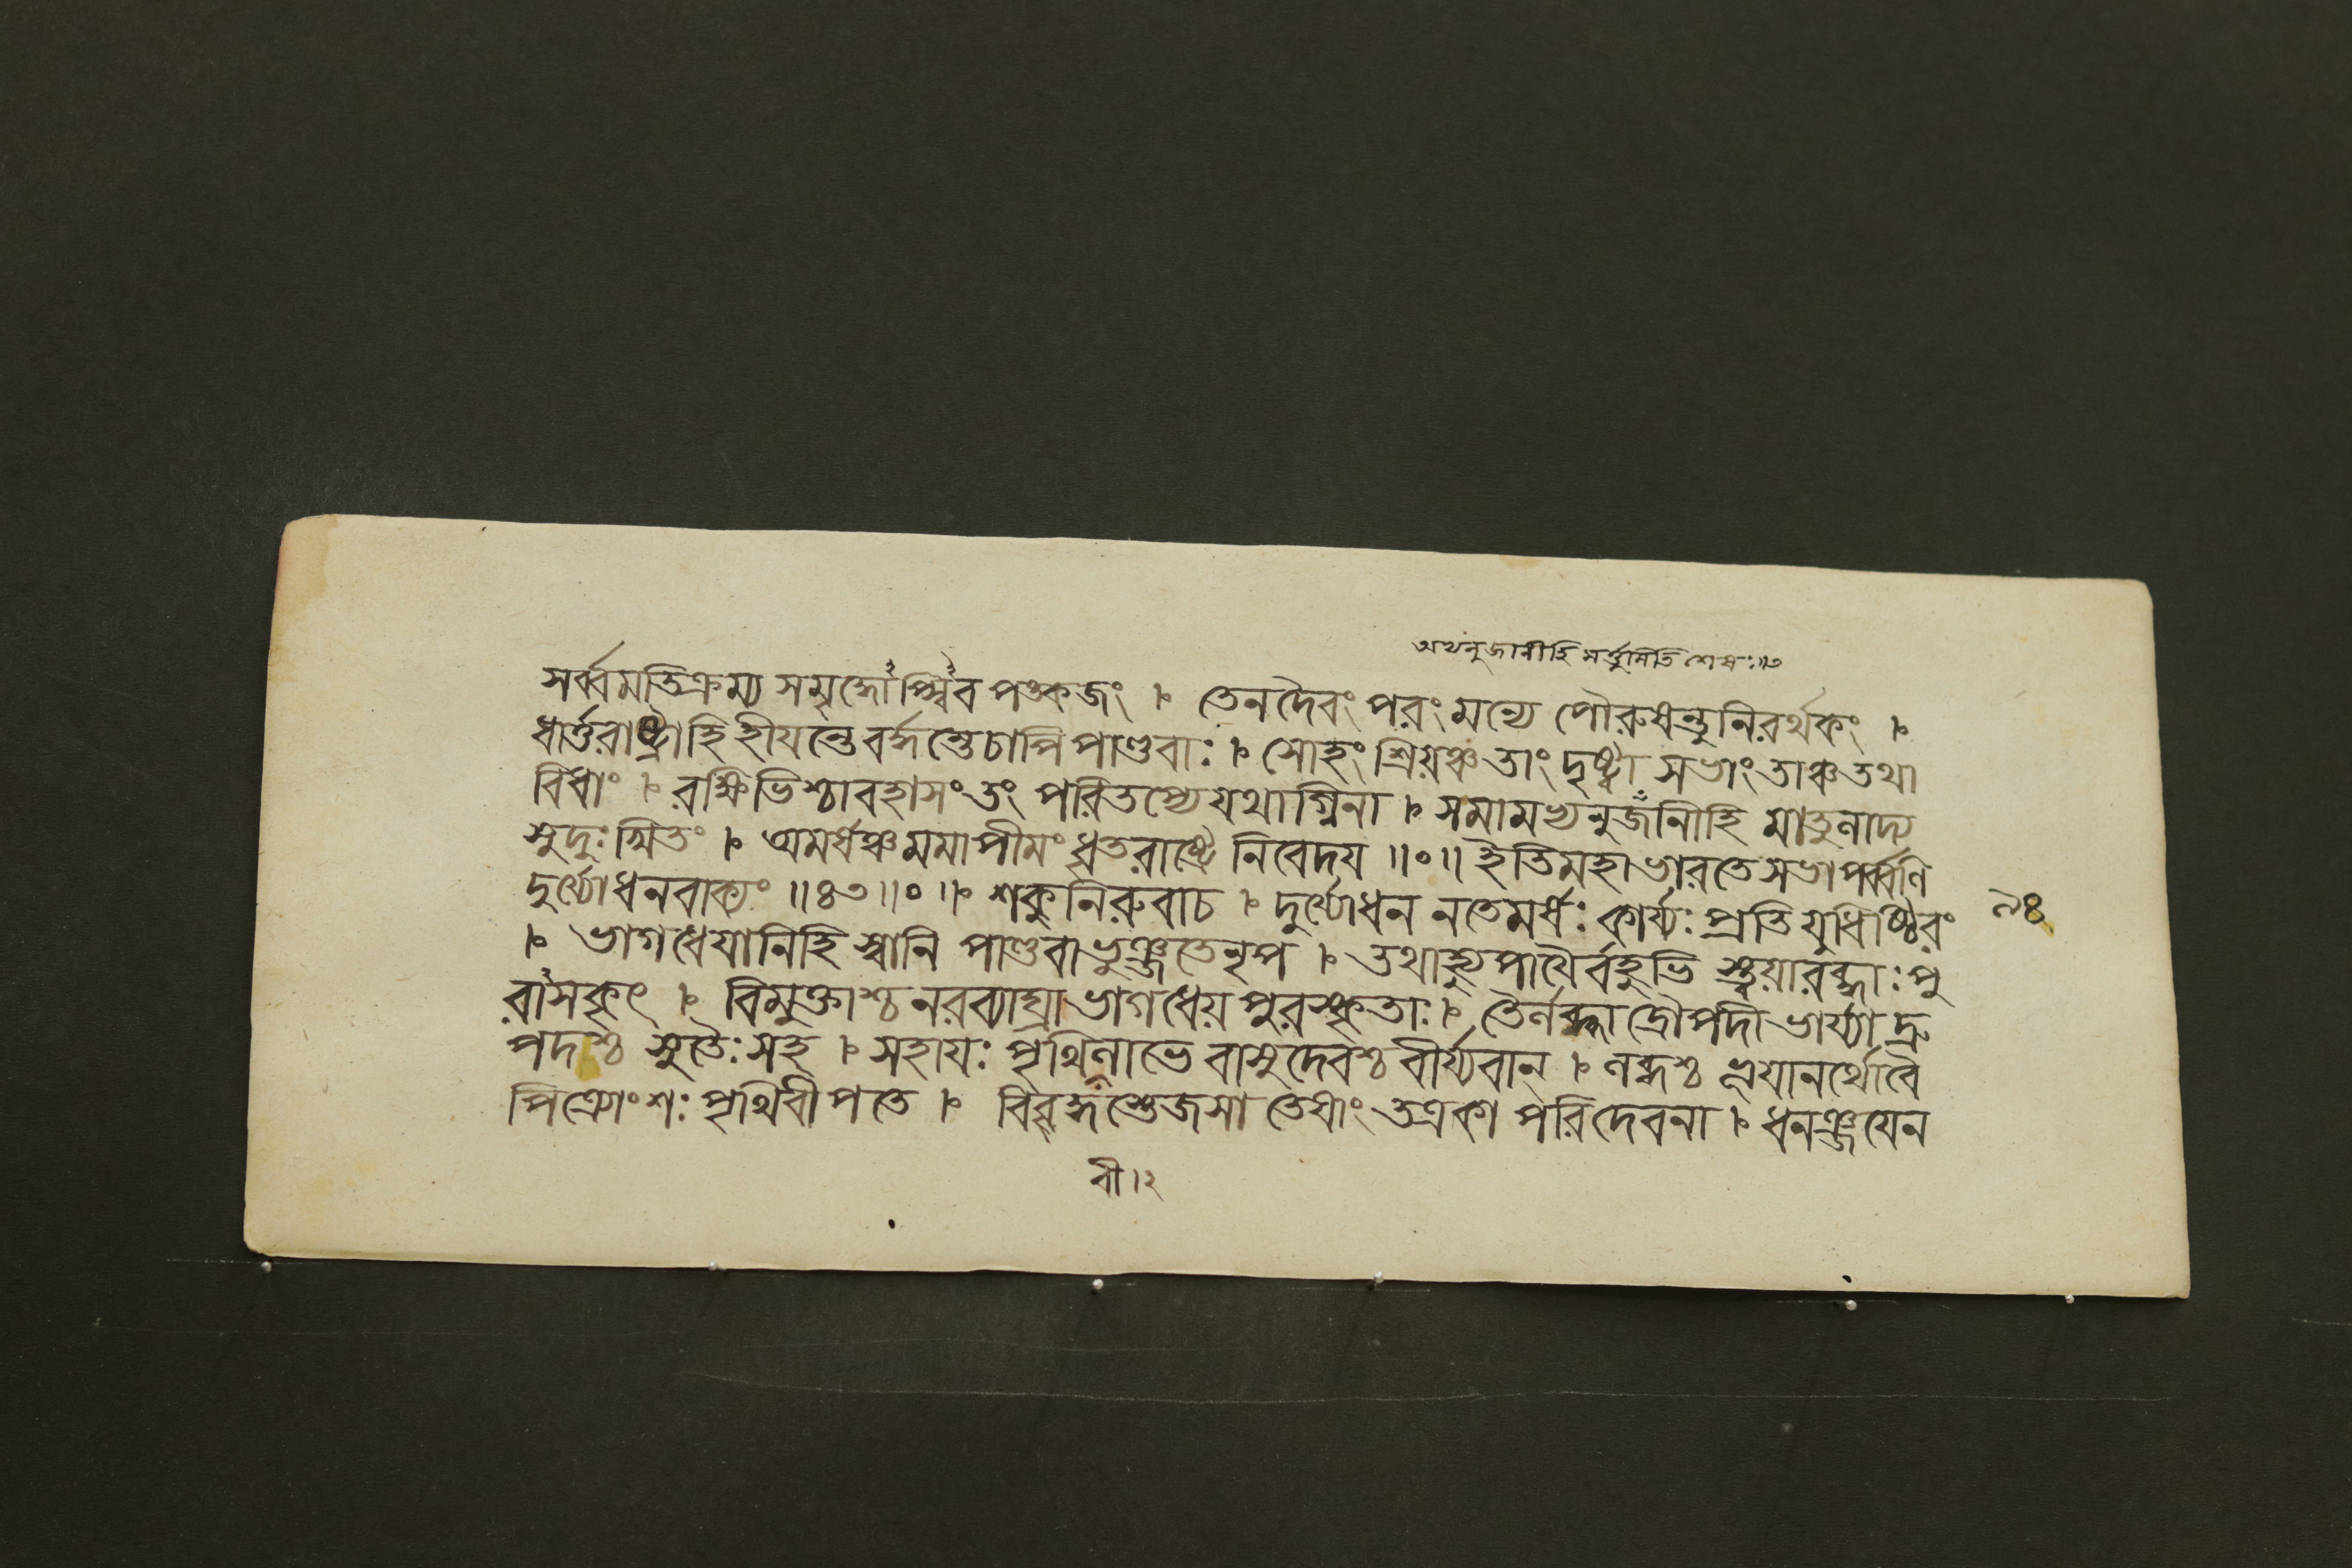 অথনুজানীহি মর্ত্তুমিতি শেষঃ॥৩
সর্ব্বমতিক্রম্য সমৃদ্ধোপ্স্বিব পঙ্কজং । তেনদৈবং পরংমন্যে পৌরুষন্তুনিরর্থকং ।
ধার্ত্তরাষ্ট্রাহি হীযন্তেবর্দ্ধন্তেচাপিপাণ্ডবাঃ । সোহং শ্রিয়ঞ্চতাং দৃষ্ট্বা সভাং তাঞ্চতথা
বিধাং । রক্ষিভিশ্চাবহাসংতং পরিতপ্যে যথাগ্নিনা । সমামভ্যনুজানীহি মাতুলাদ্য
সুদুঃখিতং । অমর্ষঞ্চমমাপীমং ধৃতরাষ্ট্রে নিবেদয ॥০॥ ইতিমহাভারতেসভাপর্ব্বণি
দুর্য্যোধনবাক্যং ॥৪৩॥০॥ । শকুনিরুবাচ । দুর্য্যোধন নতেমর্ষঃ কার্য্যঃ প্রতি যুধিষ্ঠিরং
৯৪
। ভাগধেযানিহি স্বানি পাণ্ডবাভুঞ্জতেনৃপ । তথাভ্যুপাযৈর্বহুভি স্ত্বয়ারব্ধাঃ পু
রাসকৃৎ । বিমুক্তাশ্চ নরব্যাঘ্রা ভাগধেয় পুরস্কৃতাঃ । তৈর্লব্ধা দ্রৌপদী ভার্য্যা দ্রু
পদশ্চ সুতৈঃ সহ । সহাযঃ পৃথিলাভে বাসুদেবশ্চ বীর্য্যবান্ । লব্ধশ্চ ভূযানর্থোবৈ
পিত্র্যোংশঃ পৃথিবীপতে । বিবৃদ্ধস্তেজসা তেষাং তত্রকা পরিদেবনা । ধনঞ্জযেন
বী।২